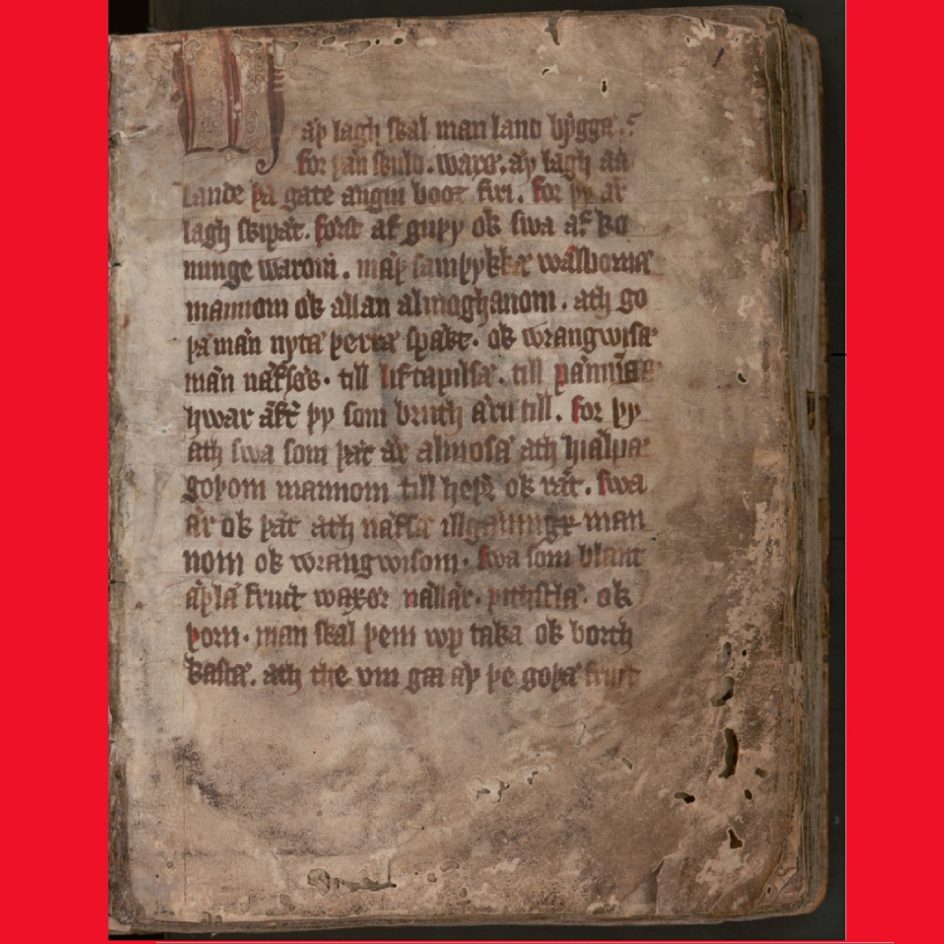 Mæþ lagh skal man land byggæ.
for þān skuld. waræ. æy lagh āā
lande þa gate ængin boot firi. for þy ær
lagh skipat. først af guþy ok swa af ko
nunge warom. mæþ samþykkæ wælbornæ
mannom ok allan almoghanom. ath go
þa mæn nyta þerræ spækt. ok wrangwisæ
mæn næfsær. till liftapilsæ. till
hwar æft þy som bruth æru till. for þy
ath swa som þæt ær almosa ath hiælpæ
goþom mannom till heþr ok ræt. swa
ær ok þæt ath næfsa illgærningx man
nom ok wrangwisom. swa som blant
æpla fruct waxer nællær. þithstla. ok
þorn. man skal þem wp taka ok borth
kasta. ath the vm gai æy þe goþa fruct